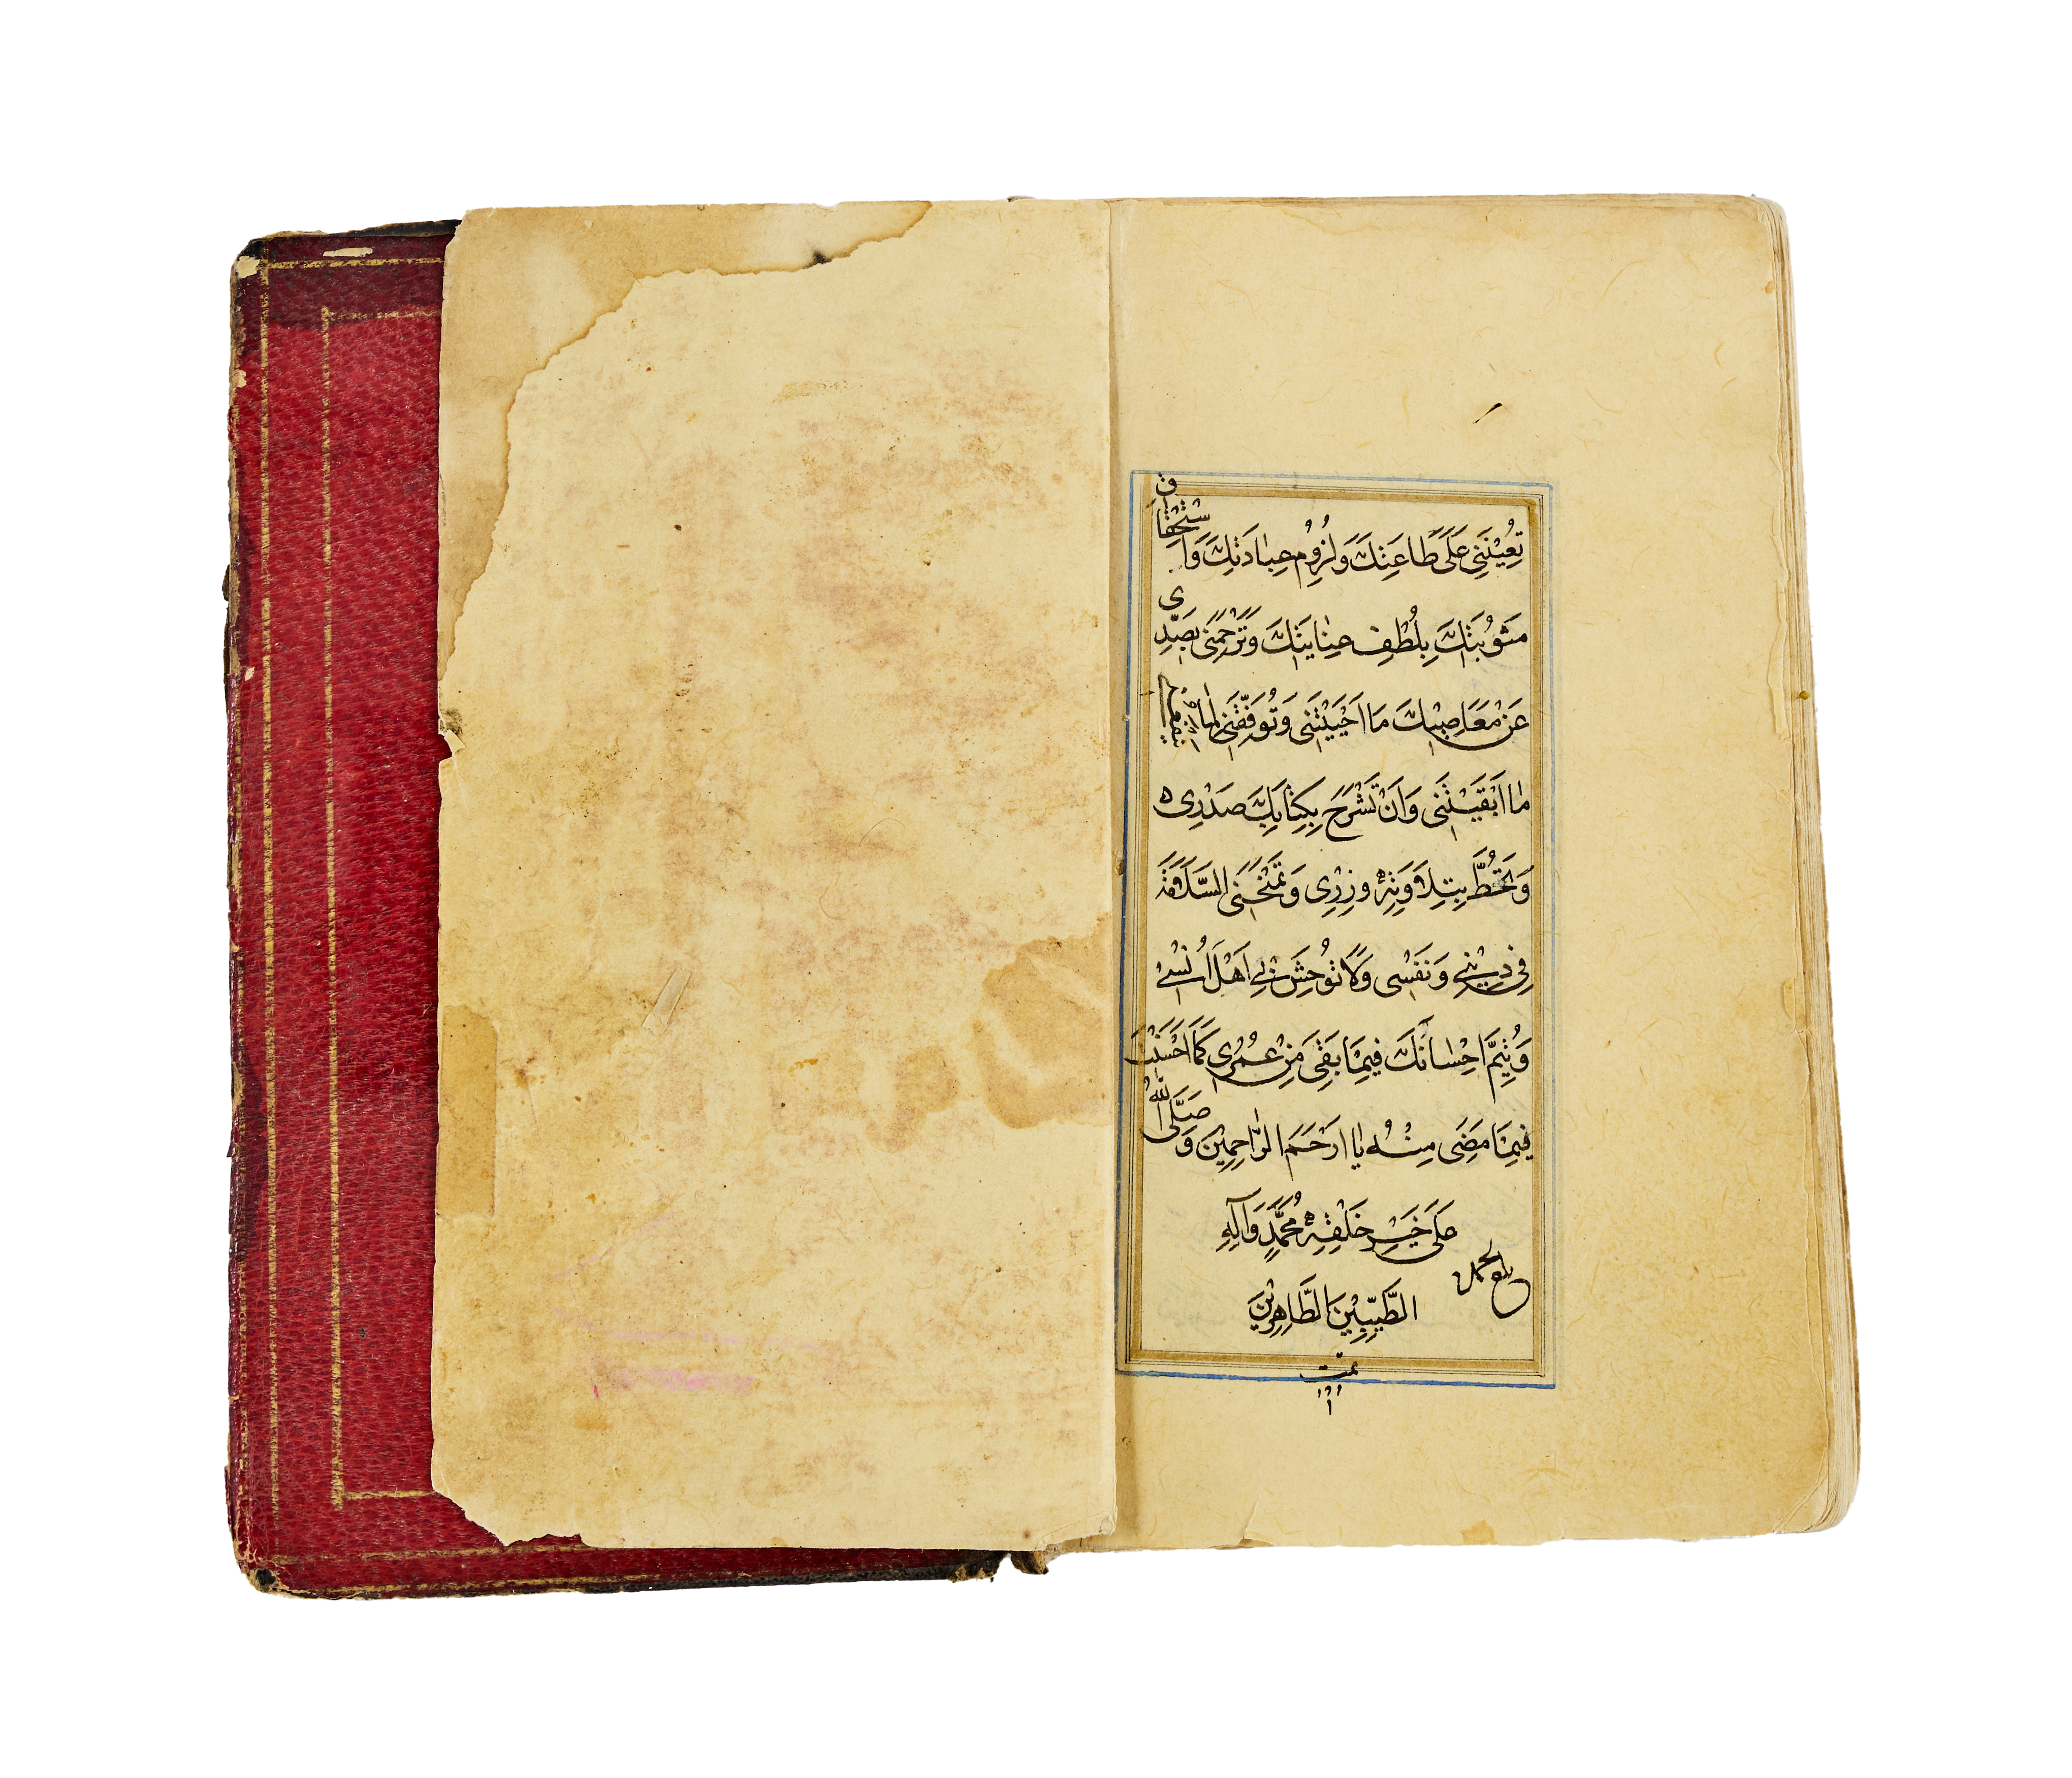 تُعِيْنَنِي عَلَىٰ طَاعَتِكَ وَلُزُوْمِ عِبٰادَتِكَ وَاسْتِحْقَاقِ
مَثُوْبَتِكَ بِلُطْفِ عِنٰايَتِكَ وَتَرْحَمَنِي بِصَدِّي
عَنْ مَعَاصِيْكَ مَا اَحْيَيْتَنِي وَتُوَفِّقَنِي لِمٰا يَنْفَعُنِي
مٰا اَبْقَيْتَنِي وَاَنْ تَشْرَحَ بِكِتٰابِكَ صَدْرِي
وَتَحُطَّ بِتِلَاوَتِهِ وِزْرِي وَتَمْنَحَنِي السَّلَامَةَ
فِي دِيْنِي وَنَفْسِي وَلَا تُوْحِشَ بِي اَهْلَ اُنْسِي
وَتُتِمَّ اِحْسٰانَكَ فِيمَا بَقِيَ مِنْ عُمُرِي كَمَا اَحْسَنْتَ
فِيمَا مَضَى مِنْهُ يٰا اَرْحَمَ الرّٰاحِمِيْنَ وَصَلَّى اللّٰهُ
عَلَى خَيْرِ خَلْقِهِ مُحَمَّدٍ وَآلِهِ
الطَّيِّبِيْنَ الطَّاهِرِيْنَ
تمّت